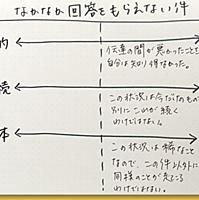 なかなか回答をもらえない件
的
伝達の間が悪かったことを
自分は知り得なかった。
続
この状況は今だけのもので
別にこれが続く
わけではない。
本
この状況は稀なこと
なので、この件以外に
同様のことが起こる
わけではない。